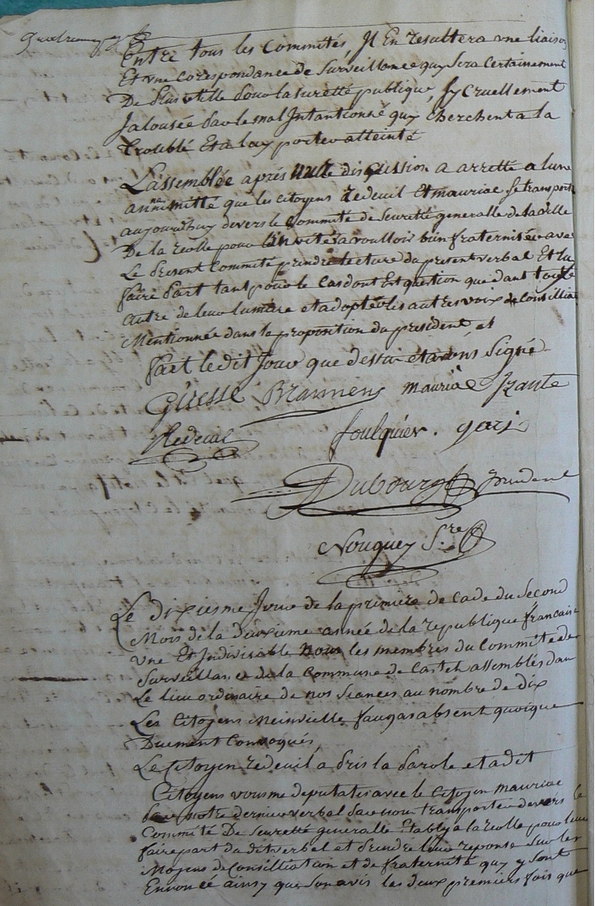 Entre tous les Committés, Il En resultera une liaison
Et une Corespondance de Surveillance quy Sera Certainement
De plus utille pour la Suretté publique, Sy Cruellement
Jalousée par le mal Intantionné quy cherchent a la
troublé Et a luy porter atteinté
L'assemblée aprés nulle discussion a arretté a lune
annimitté que les citoyens Redeuil Et mauriac Se transporte
aujourdhuy devers le Committé de Seuretté generalle de la ville
De la Reolle pour linvité a voulloir bien fraternité avec
Le present Committé prendre lecture du present verbal Et luy
faire part tant pour le cas dont Est question que dant toute
autre de leur lumiere et adopté les autres voix de Consilliation
Mentionnée dans la proposition du president, et
fait le dit Jour que dessus et avons Signé
Mauriac
Redeuil foulquier .
Dubourg president
Nouguey S.re
Le dixiesme Jour de la premiere de cade du Second
Mois de la deuxieme année de la republique francaise
une Et Indivisible Nous les membres du Committé de
Surveillance de la Commune de Castets assemblés dans
Le lieu ordinaire de nos Seances au nombre de dix
Les Citoyens faugas absent quoique
Duement Convoqués,
Le Citoyen Redeuil a pris la parole et a dit
Citoyens vous me deputates avec le Citoyen Mauriac
par votre dernier verbal pour nous transporter devers le
Committé De Seuretté generalle Etably a la Reolle pour leur
faire part du dit verbal et prendre leur reponse Sur les
Moyens de Consilliation et de fraternité quy y Sont
Ennoncé ainsy que Son avis les deux premiers fois que